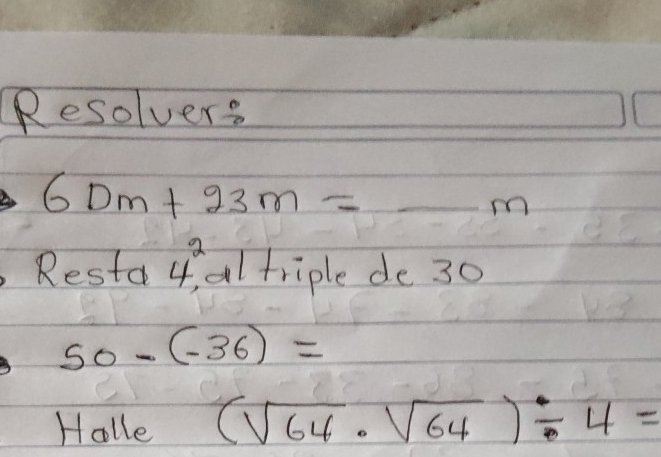 Resolver:
6 Dm + 23 m = ___ m
Resta 4², al triple de 30
50 - (-36) =
Halle (√64 . √64) ÷ 4 =